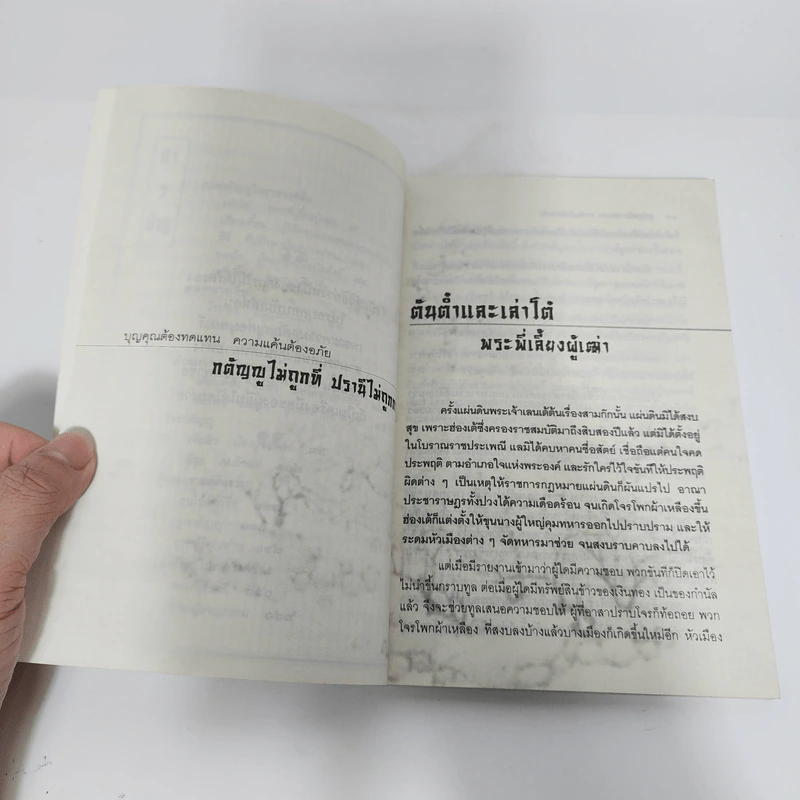 บุญคุณต้องทดแทน ความแค้นต้องอภัย
กตัญญูไม่ถูกที่ ปรานีไม่ถูก
ตันต๋ำและเล่าโต๋
พระพี่เลี้ยงผู้เฒ่า
ครั้งแผ่นดินพระเจ้าเลนเต้ต้นเรื่องสามก๊กนั้น แผ่นดินมิได้สงบ
สุข เพราะฮ่องเต้ซึ่งครองราชสมบัติมาถึงสิบสองปีแล้ว แต่มิได้ตั้งอยู่
ในโบราณราชประเพณี แลมิได้คบหาคนซื่อสัตย์ เชื่อถือแต่คนใจคด
ประพฤติ ตามอำเภอใจแห่งพระองค์ และรักใคร่ไว้ใจขันทีให้ประพฤติ
ผิดต่าง ๆ เป็นเหตุให้ราชการกฎหมายแผ่นดินก็ผันแปรไป อาณา
ประชาราษฎรทั้งปวงได้ความเดือดร้อน จนเกิดโจรโพกผ้าเหลืองขึ้น
ฮ่องเต้ก็แต่งตั้งให้ขุนนางผู้ใหญ่คุมทหารออกไปปราบปราม และให้
ระดมหัวเมืองต่าง ๆ จัดทหารมาช่วย จนสงบราบคาบลงไปได้
แต่เมื่อมีรายงานเข้ามาว่าผู้ใดมีความชอบ พวกขันทีก็ปิดเอาไว้
ไม่นำขึ้นกราบทูล ต่อเมื่อผู้ใดมีทรัพย์สินข้าวของเงินทอง เป็นของกำนัล
แล้ว จึงจะช่วยทูลเสนอความชอบให้ ผู้ที่อาสาปราบโจรก็ท้อถอย พวก
โจรโพกผ้าเหลือง ที่สงบลงบ้างแล้วบางเมืองก็เกิดขึ้นใหม่อีก หัวเมือง